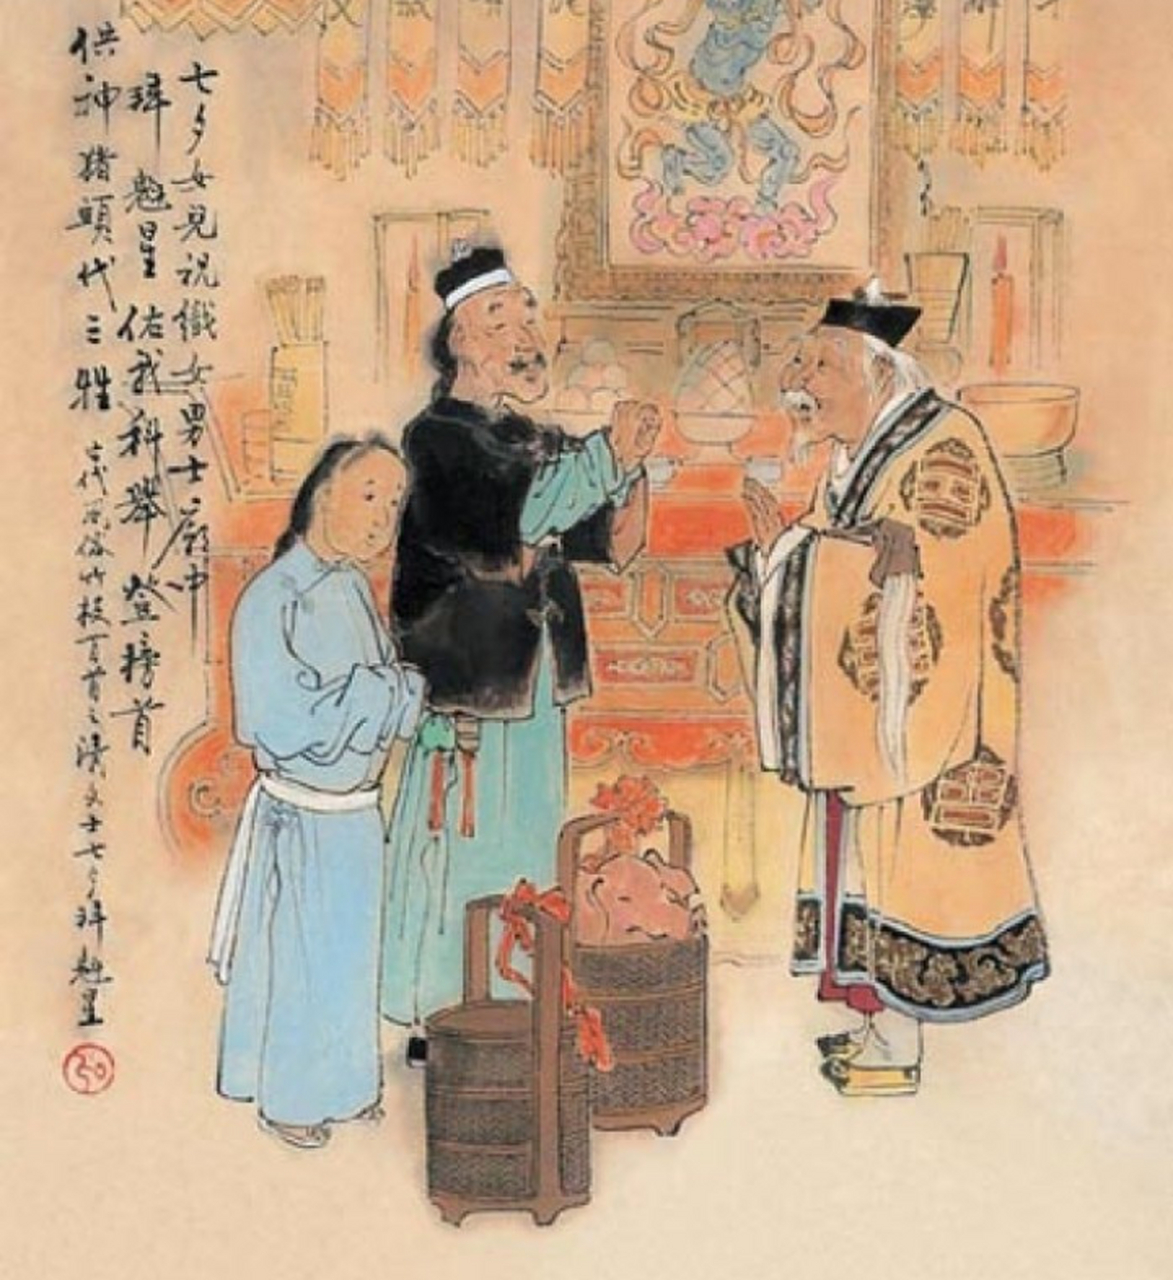 七夕女兒祝織女男士廟中
拜魁星佑我科舉登榜首
供神猪頭代三牲
古代風俗竹枝百首之清文士七夕拜魁星